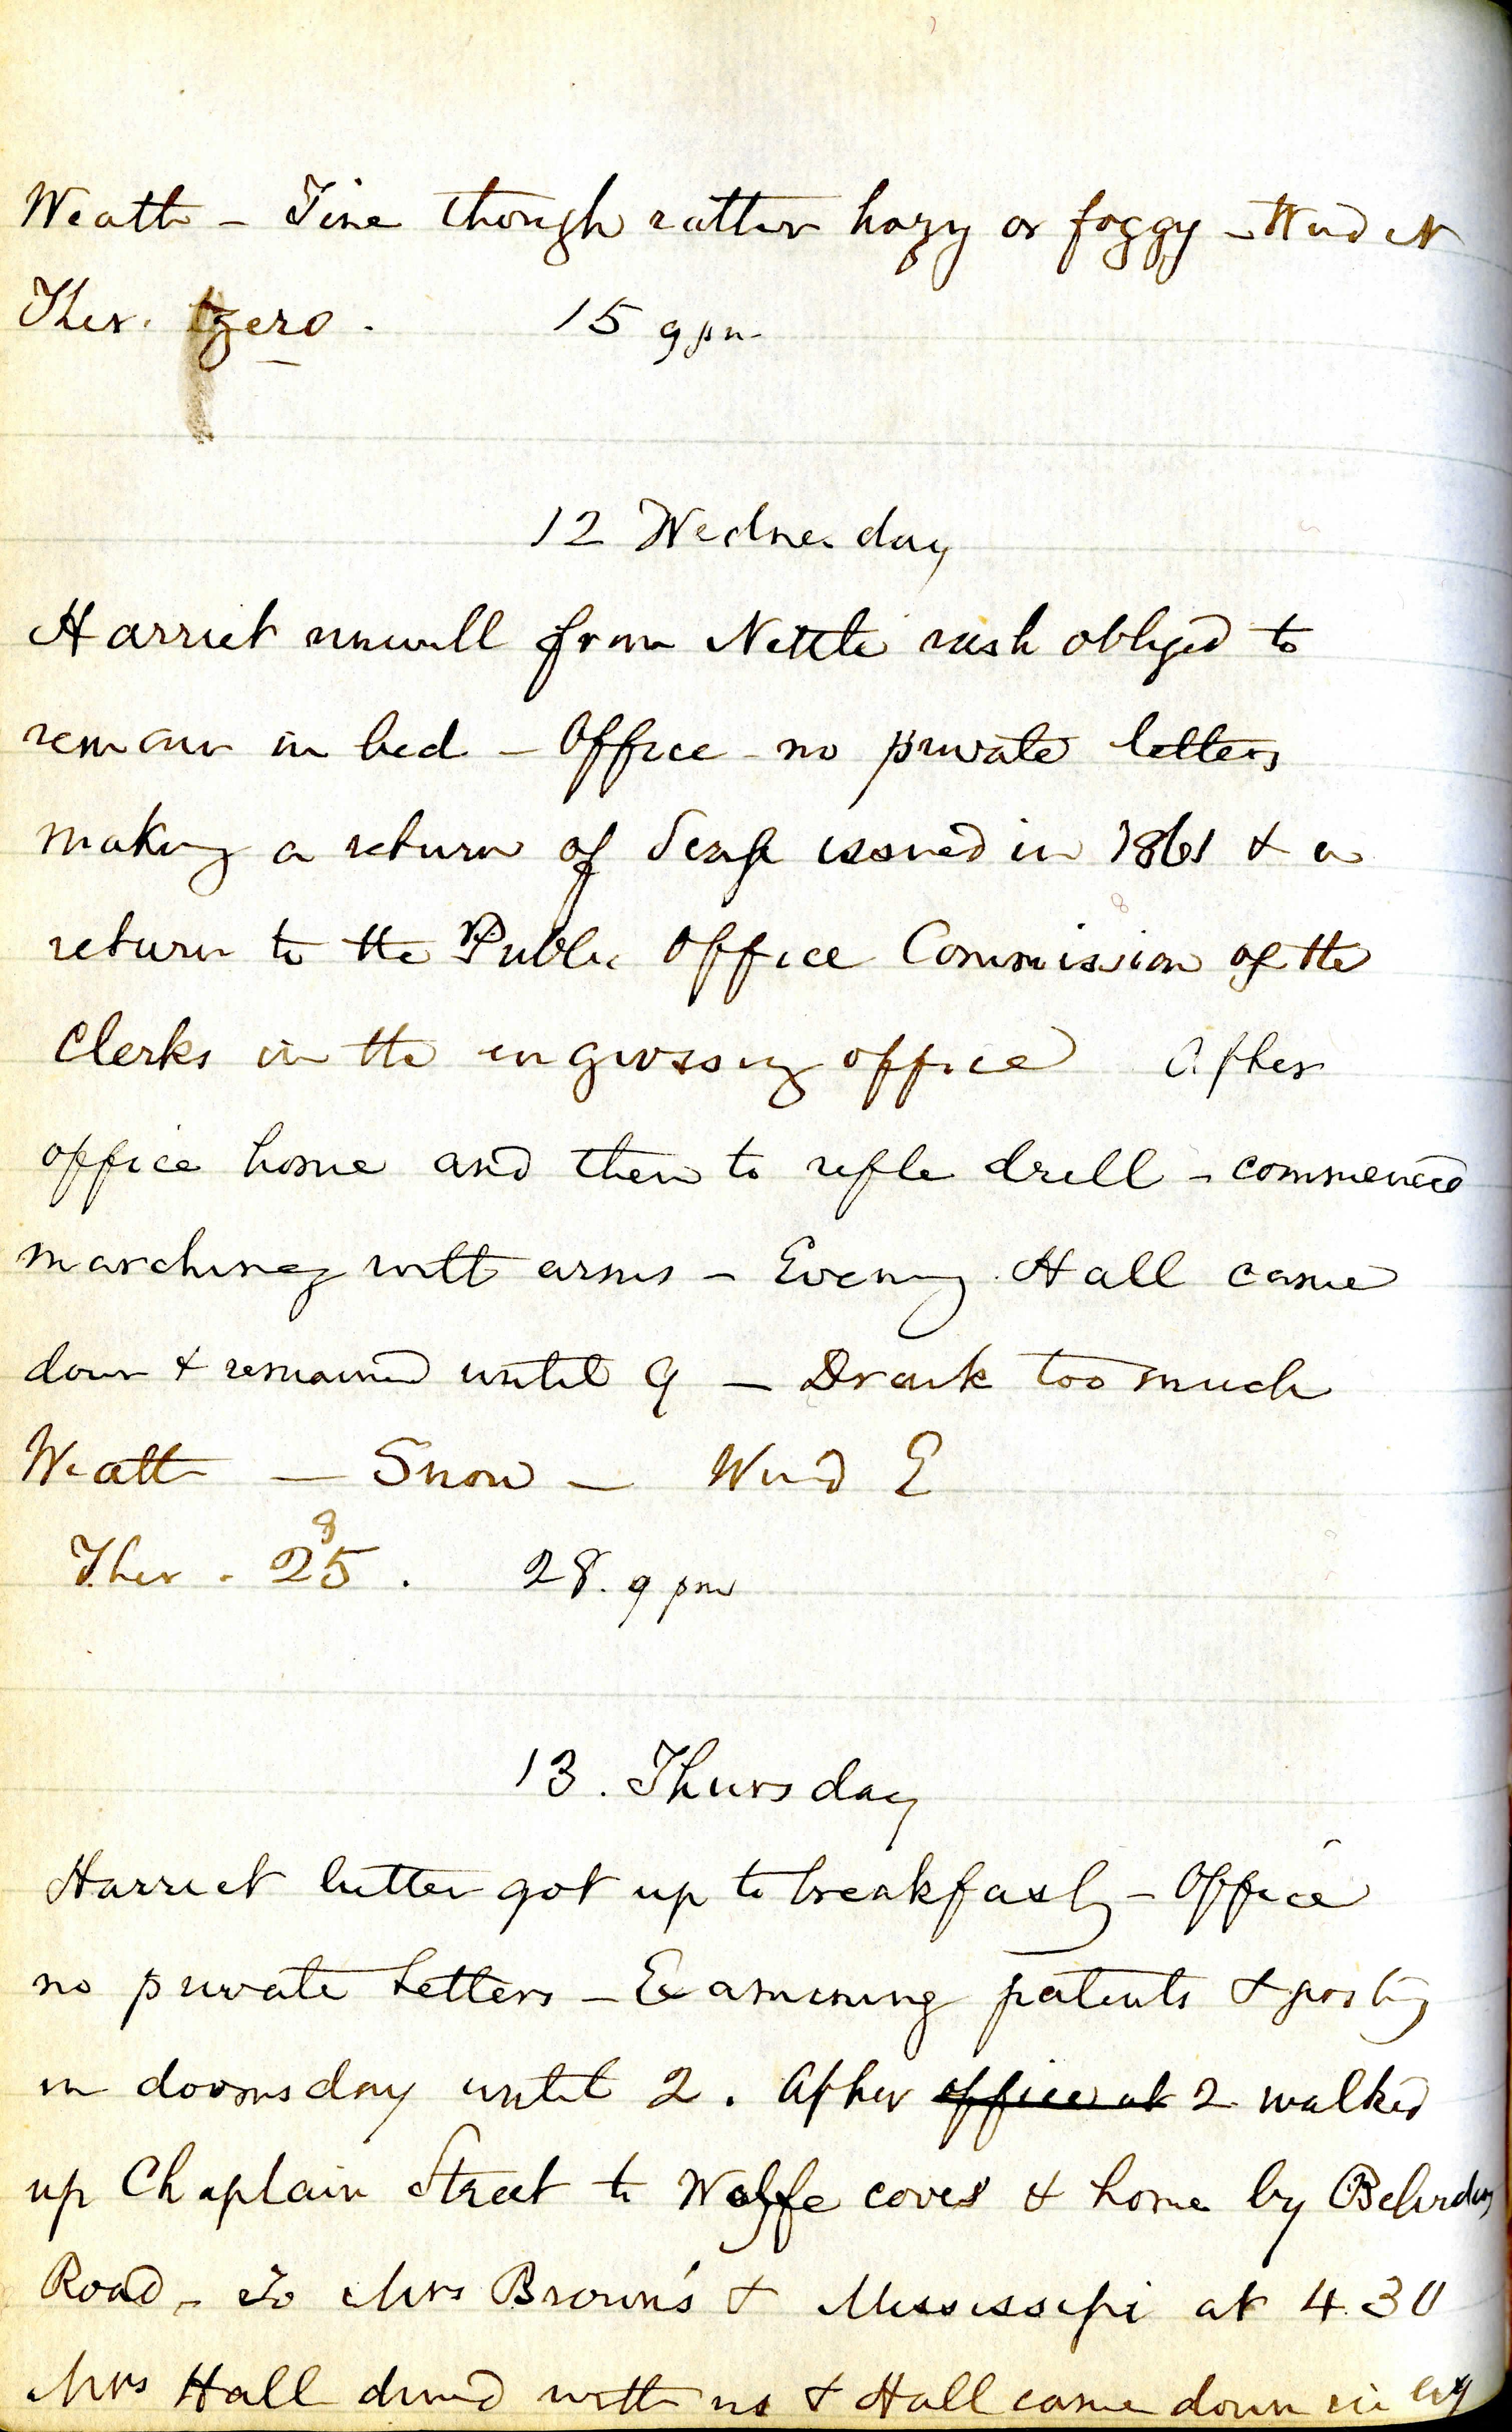 Weath - Fine though rather hazy or foggy - Wind N
Ther. zero. 15 9 pm
12 Wednesday
Harriet unwell from Nettle rash obliged to
remain in bed - Office - no private letters
making a return of Scrip issued in 1861 & a
return to the Public Office Commission of the
Clerks in the engrossing office After
office home and then to rifle drill - commenced
marching with arms - Evening Hall came
down & remained until 9 - Drank too much
Weath - Snow - Wind E
Ther. 25. 28. 9 pm
13. Thursday
Harriet better got up to breakfast - Office
no private letters - Examining patents & posting
in doomsday until 2. After office at 2 walked
up Chaplain Street to Wolfe coves & home by
Road - To Mrs Brown's & Mississipi at 4.30
Mrs Hall dined with us & Hall came down in evg